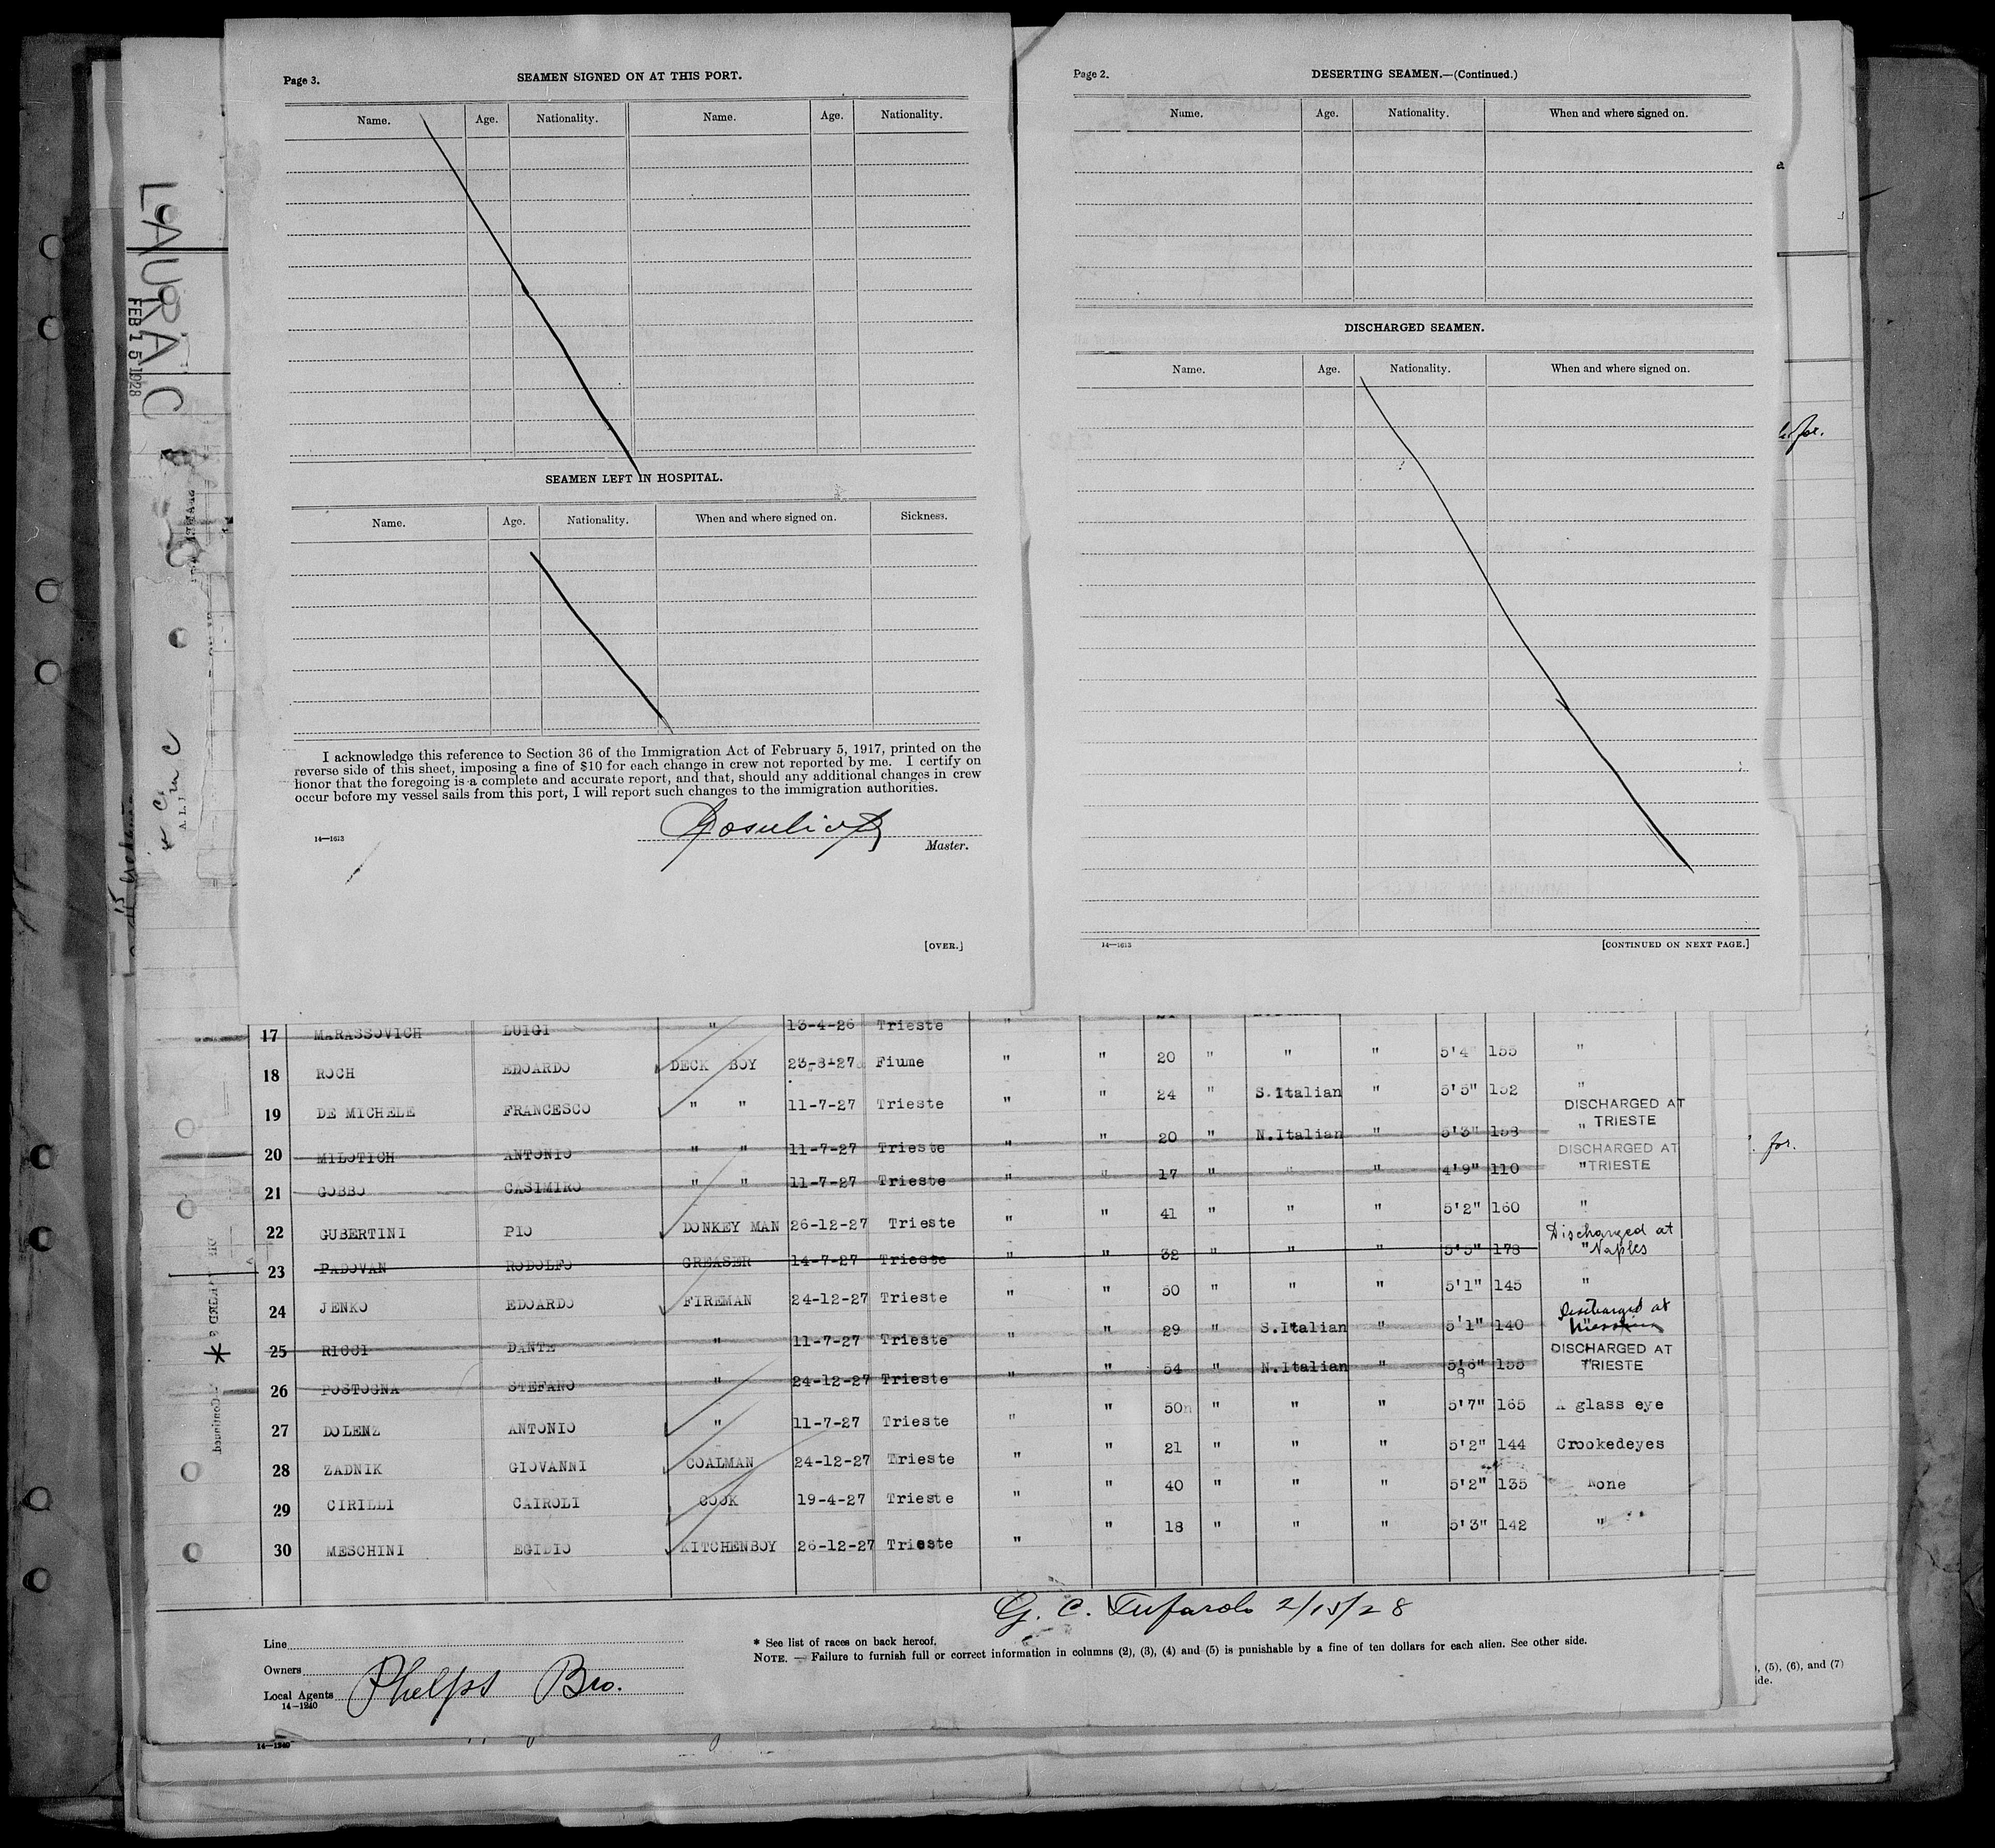 Page 3.
SEAMEN SIGNED ON AT THIS PORT.
Name. Age. Nationality. Name. Age. Nationality.
SEAMEN LEFT IN HOSPITAL.
Name. Age. Nationality. When and where signed on. Sickness.
I acknowledge this reference to Section 36 of the Immigration Act of February 5, 1917, printed on the
reverse side of this sheet, imposing a fine of $10 for each change in crew not reported by me. I certify on
honor that the foregoing is a complete and accurate report, and that, should any additional changes in crew
occur before my vessel sails from this port, I will report such changes to the immigration authorities.
14—1613
Master.
[OVER.]
Page 2.
DESERTING SEAMEN.—(Continued.)
Name. Age. Nationality. When and where signed on.
DISCHARGED SEAMEN.
Name. Age. Nationality. When and where signed on.
14—1613
[CONTINUED ON NEXT PAGE.]
LAURA C
FEB 15 1928
17 MARASSOVICH LUIGI " 13-4-26 Trieste "
18 ROCH EDOARDO DECK BOY 23-8-27 Fiume " " 20 " " " 5'4 155 "
19 DE MICHELE FRANCESCO " " 11-7-27 Trieste " " 24 " S.Italian " 5'5" 152 "
20 MILOTICH ANTONIO " " 11-7-27 Trieste " " 20 " N.Italian " 5'3" 158 DISCHARGED AT " TRIESTE
21 GOBBO CASIMIRO " " 11-7-27 Trieste " " 17 " " " 4'9" 110 DISCHARGED AT " TRIESTE
22 GUBERTINI PIO DONKEY MAN 26-12-27 Trieste " " 41 " " " 5'2" 160 "
23 PADOVAN RODOLFO GREASER 14-7-27 Trieste " " 32 " " " 5'5" 178 Discharged at " Naples
24 JENKO EDOARDO FIREMAN 24-12-27 Trieste " " 50 " " " 5'1" 145 "
25 RICCI DANTE " 11-7-27 Trieste " " 29 " S.Italian " 5'1" 140 Discharged at
26 POSTOGNA STEFANO " 24-12-27 Trieste " " 54 " N.Italian " 5'6" 155 DISCHARGED AT TRIESTE
27 DOLENZ ANTONIO " 11-7-27 Trieste " " 50 " " " 5'7" 165 A glass eye
28 ZADNIK GIOVANNI COALMAN 24-12-27 Trieste " " 21 " " " 5'2" 144 Crookedeyes
29 CIRILLI CAIROLI COOK 19-4-27 Trieste " " 40 " " " 5'2" 135 None
30 MESCHINI EGIDIO KITCHENBOY 26-12-27 Trieste " " 18 " " " 5'3" 142 "
G. C. 2/15/28
Line
Owners
Local Agents Phelps Bro.
14—1240
* See list of races on back hereof.
NOTE. — Failure to furnish full or correct information in columns (2), (3), (4) and (5) is punishable by a fine of ten dollars for each alien. See other side.
, (5), (6), and (7)
ide.
14—1240